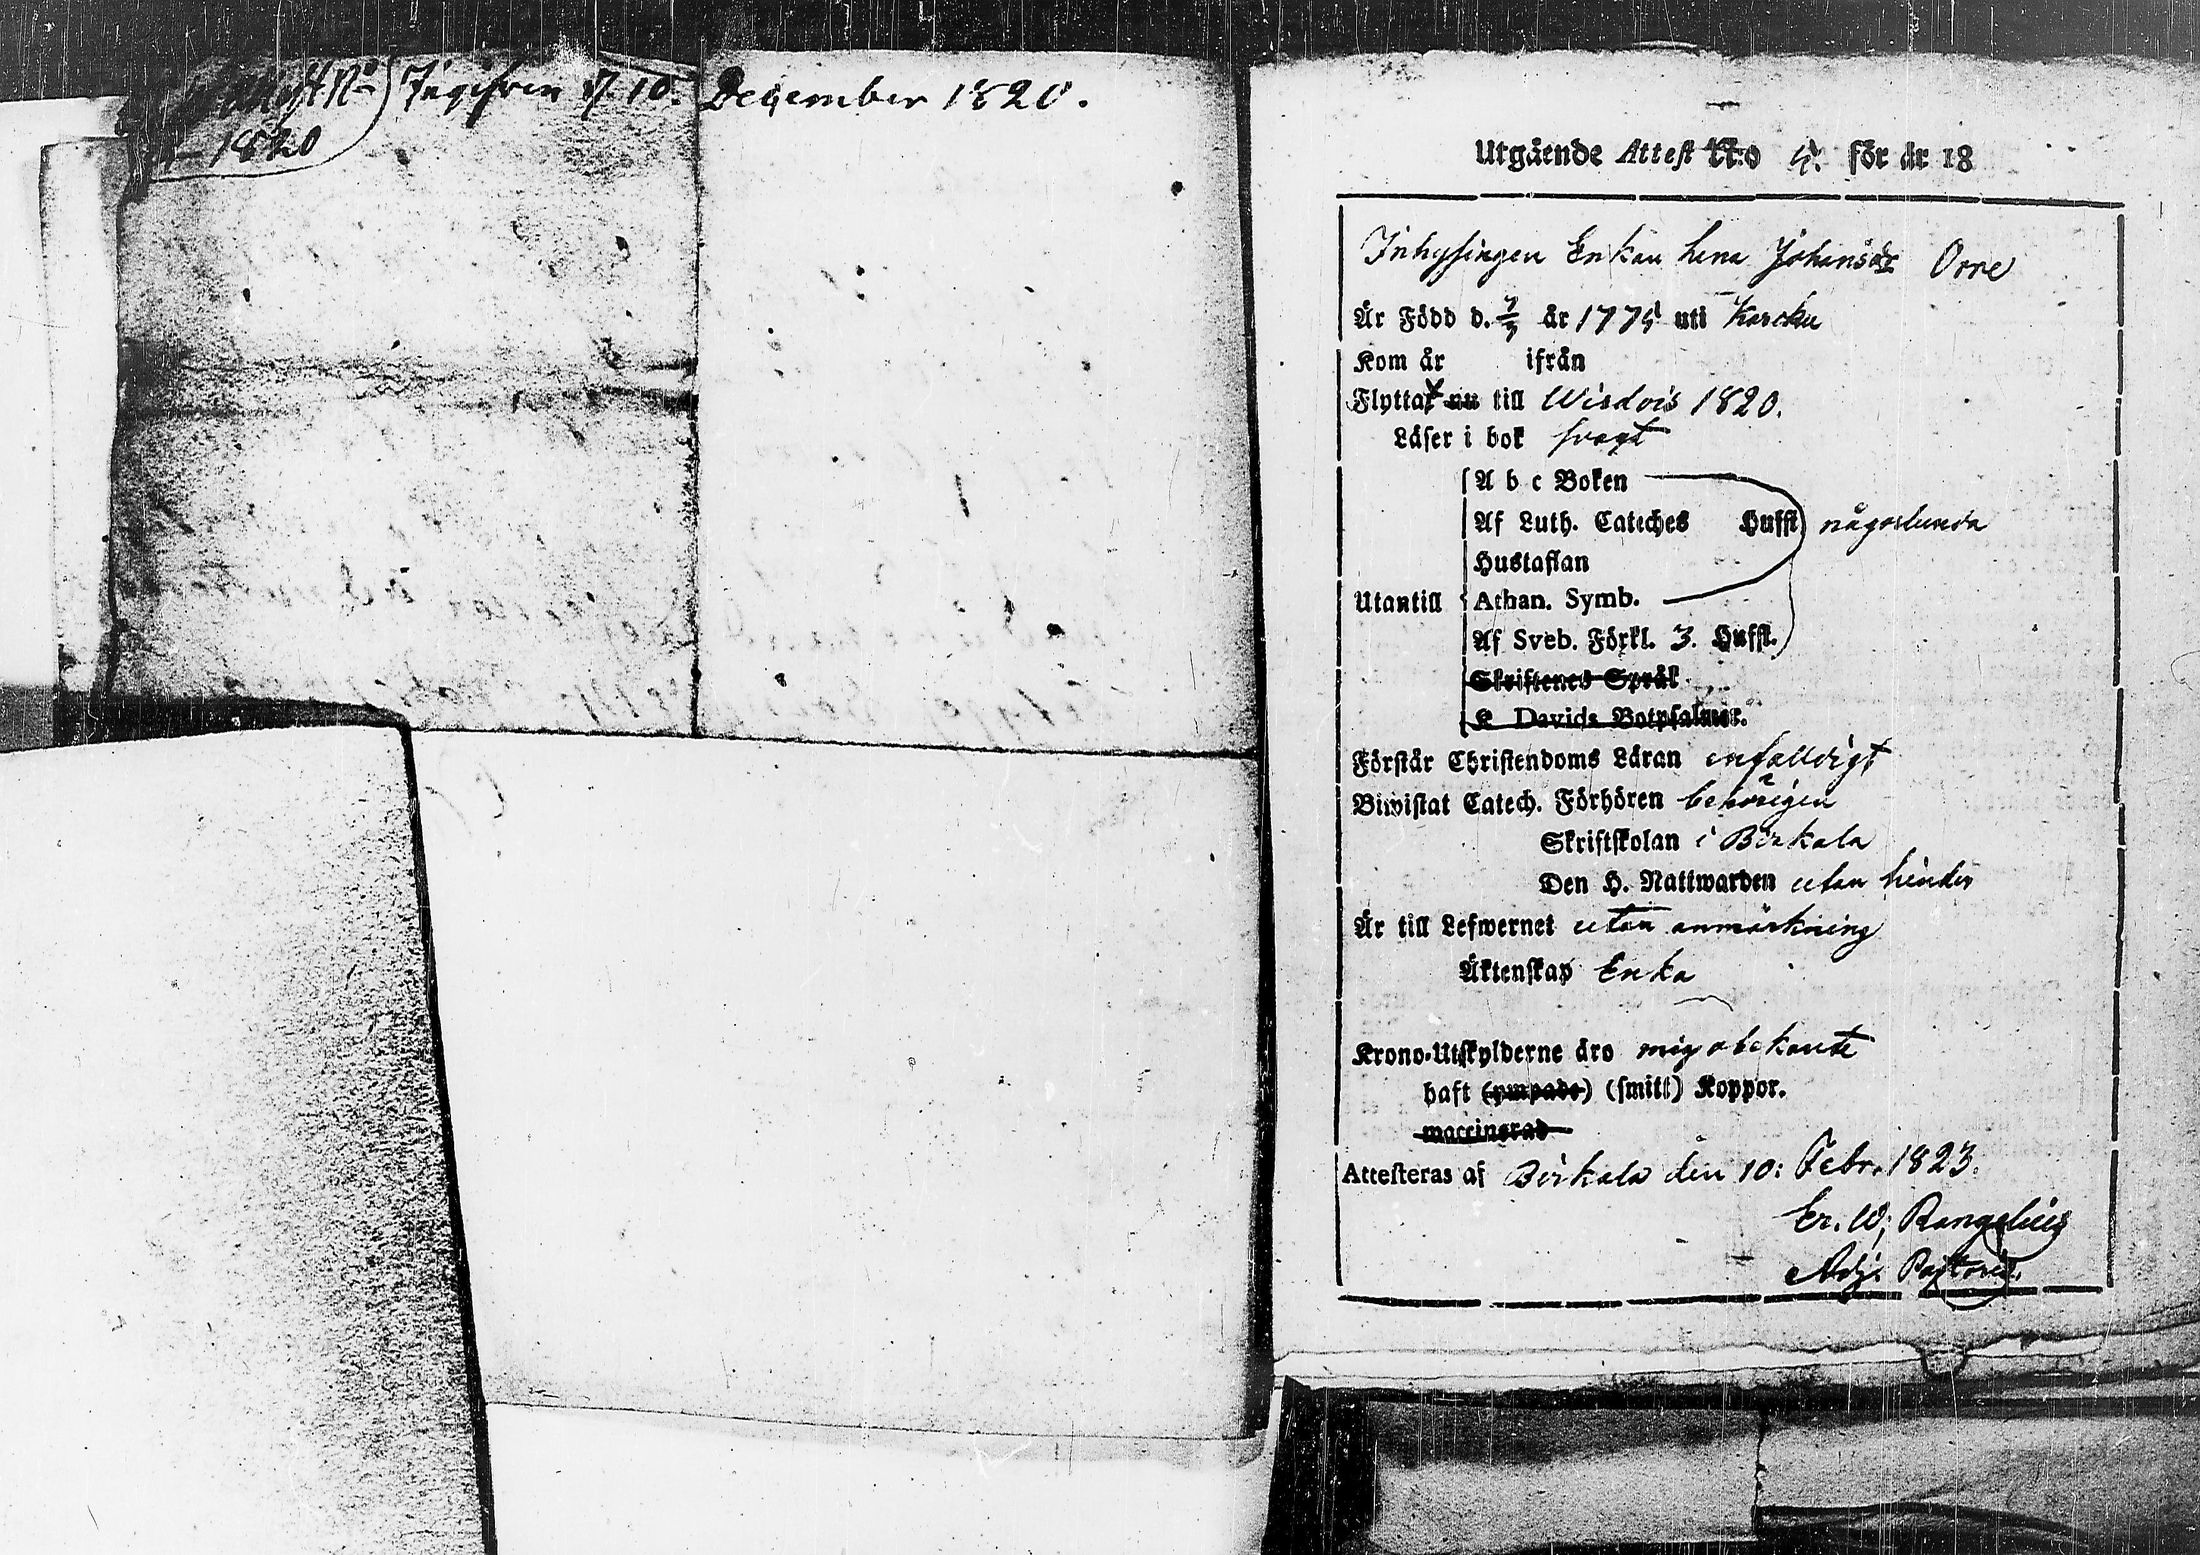 Ingifven d. 10. December 1820.
1820
Utgående Attest N:o 4. för år 18
Inhysingen Enkan Lena Johansdr Orre
Är Född d. 7/3 år 1775 uti Karcku
Kom år ifrån
Flyttat nu till 1820.
Läser i bok svagt
A b c Boken
Af Luth. Cateches Hufst. någorlunda
Hustaflan
Utantill Athan. Symb.
Af Sveb. Förkl. 3. Hufst.
Skriftenes Språk
K Davids Botpsalmer.
Förstår Christendoms Läran enfaldigt
Biwistat Catech. Förhören behörigen
Skriftskolan i Birkala
Den H. Nattwarden utan hinder
Är till Lefwernet utan anmärkning
Äktenskap Enka
Krono-Utskylderne äro mig obekante
haft (ympade) (smitt) Koppor.
vaccinerad
Attesteras af Birkala den 10: Febr. 1823.
Er. W. Rangelius
Adj. Pastoris.